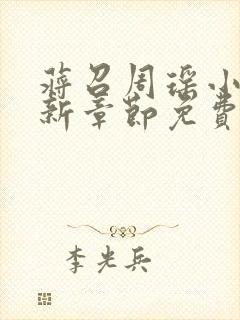 蒋召周瑶小
新章节免费
李光兵